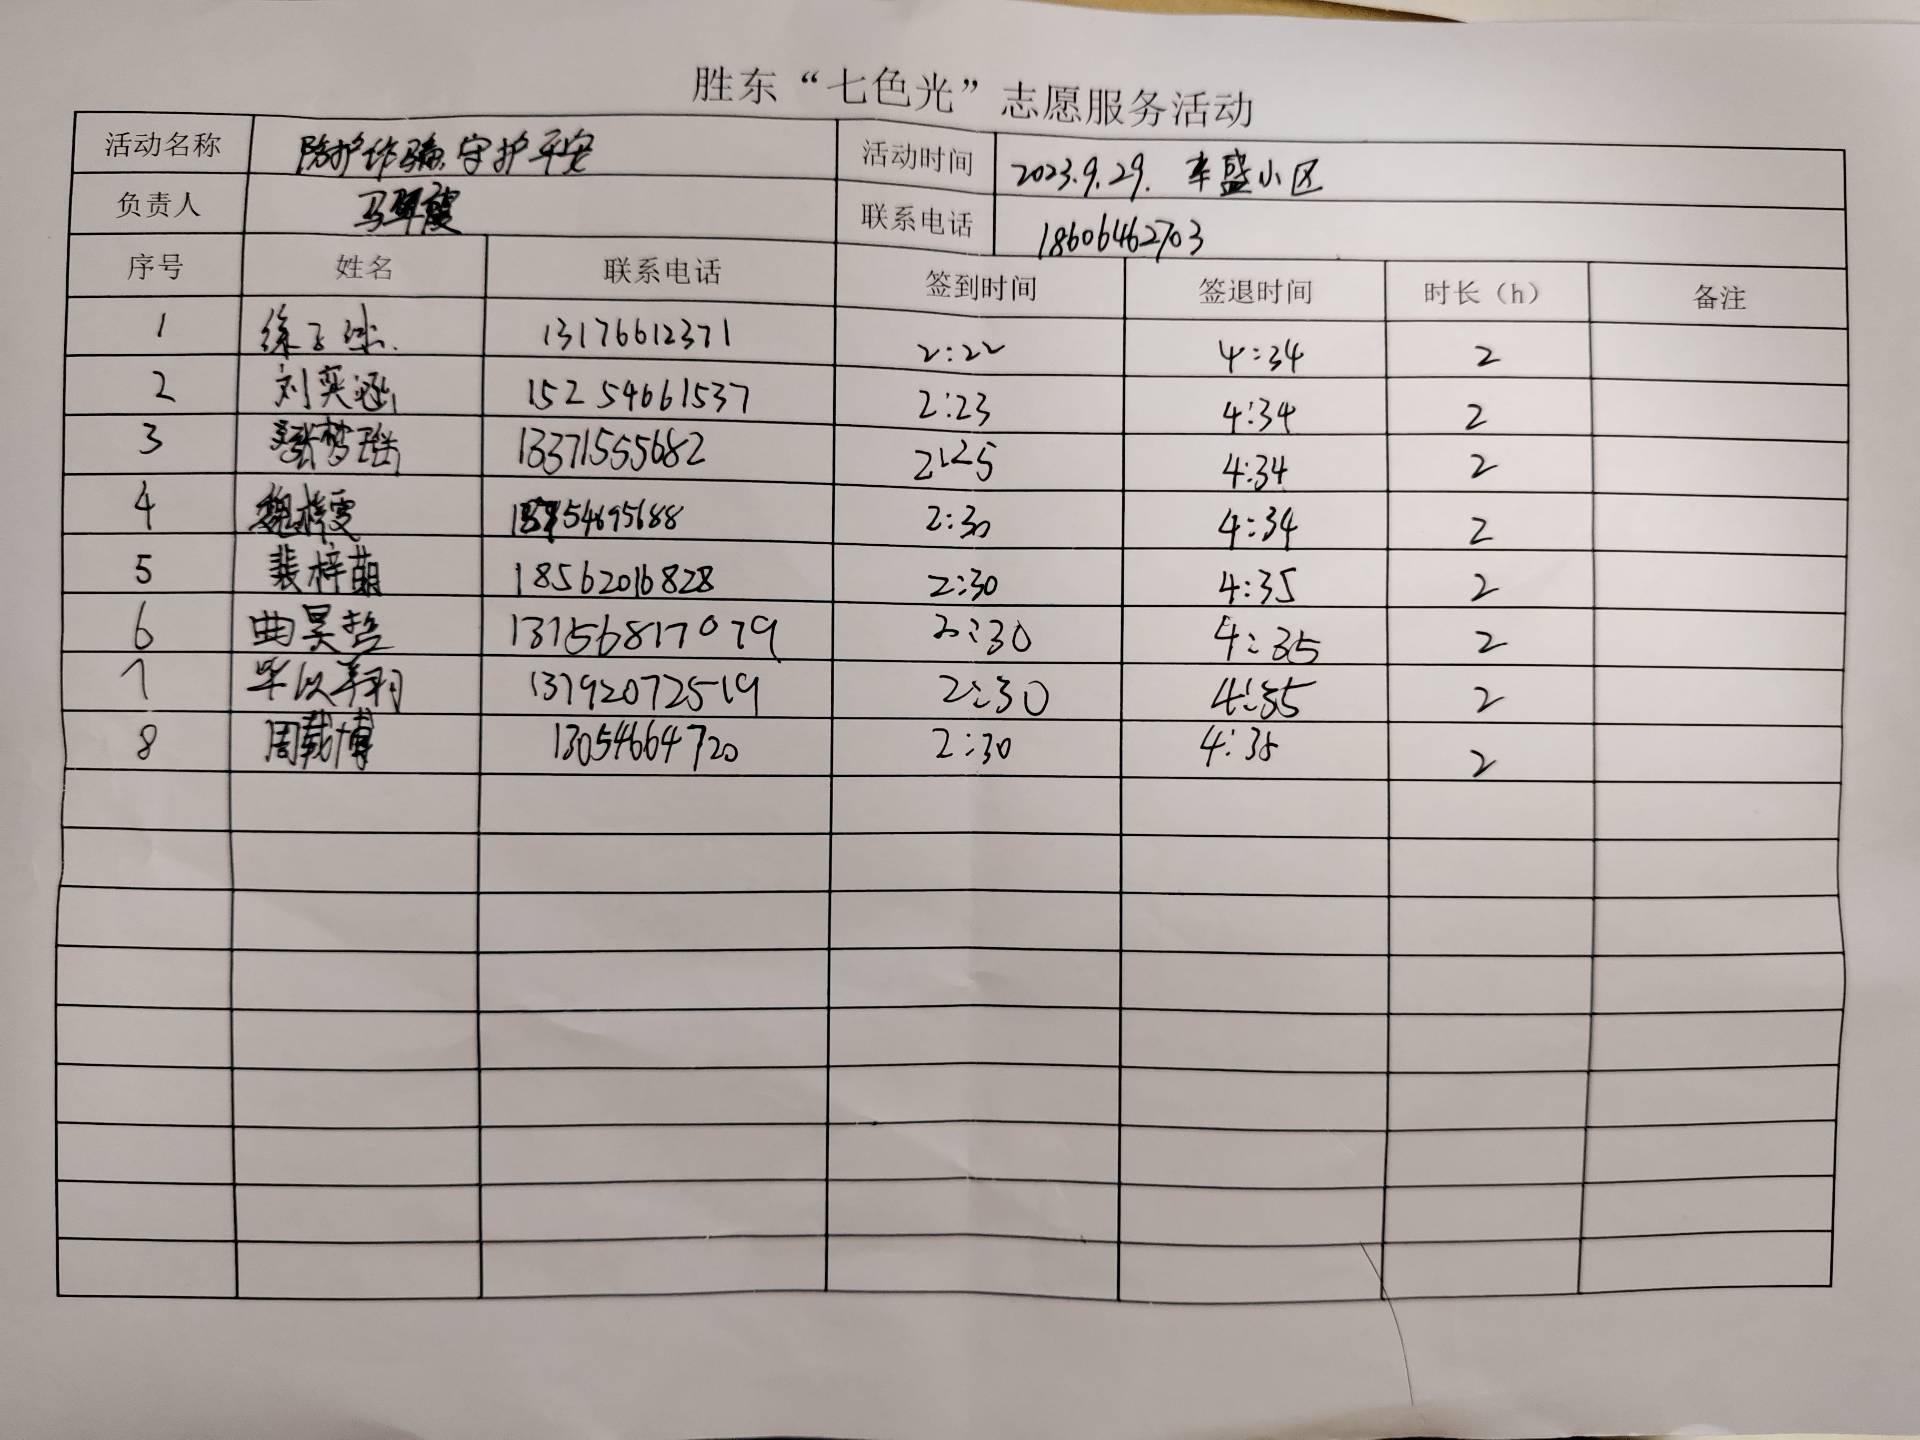 胜东“七色光”志愿服务活动
活动名称 防护诈骗,守护平安 活动时间 2023.9.29. 丰盛小区
负责人 马翠霞 联系电话 18606462703
序号 姓名 联系电话 签到时间 签退时间 时长（h） 备注
1 徐子 13176612371 2:22 4:34 2
2 刘奕涵 15254661537 2:23 4:34 2
3 张梦瑶 13371555682 2:25 4:34 2
4 魏梓雯 2:30 4:34 2
5 裴梓萌 18562016828 2:30 4:35 2
6 曲昊哲 13156817079 2:30 4:35 2
7 毕以翔 13792072519 2:30 4:35 2
8 周载博 13054664720 2:30 4:35 2